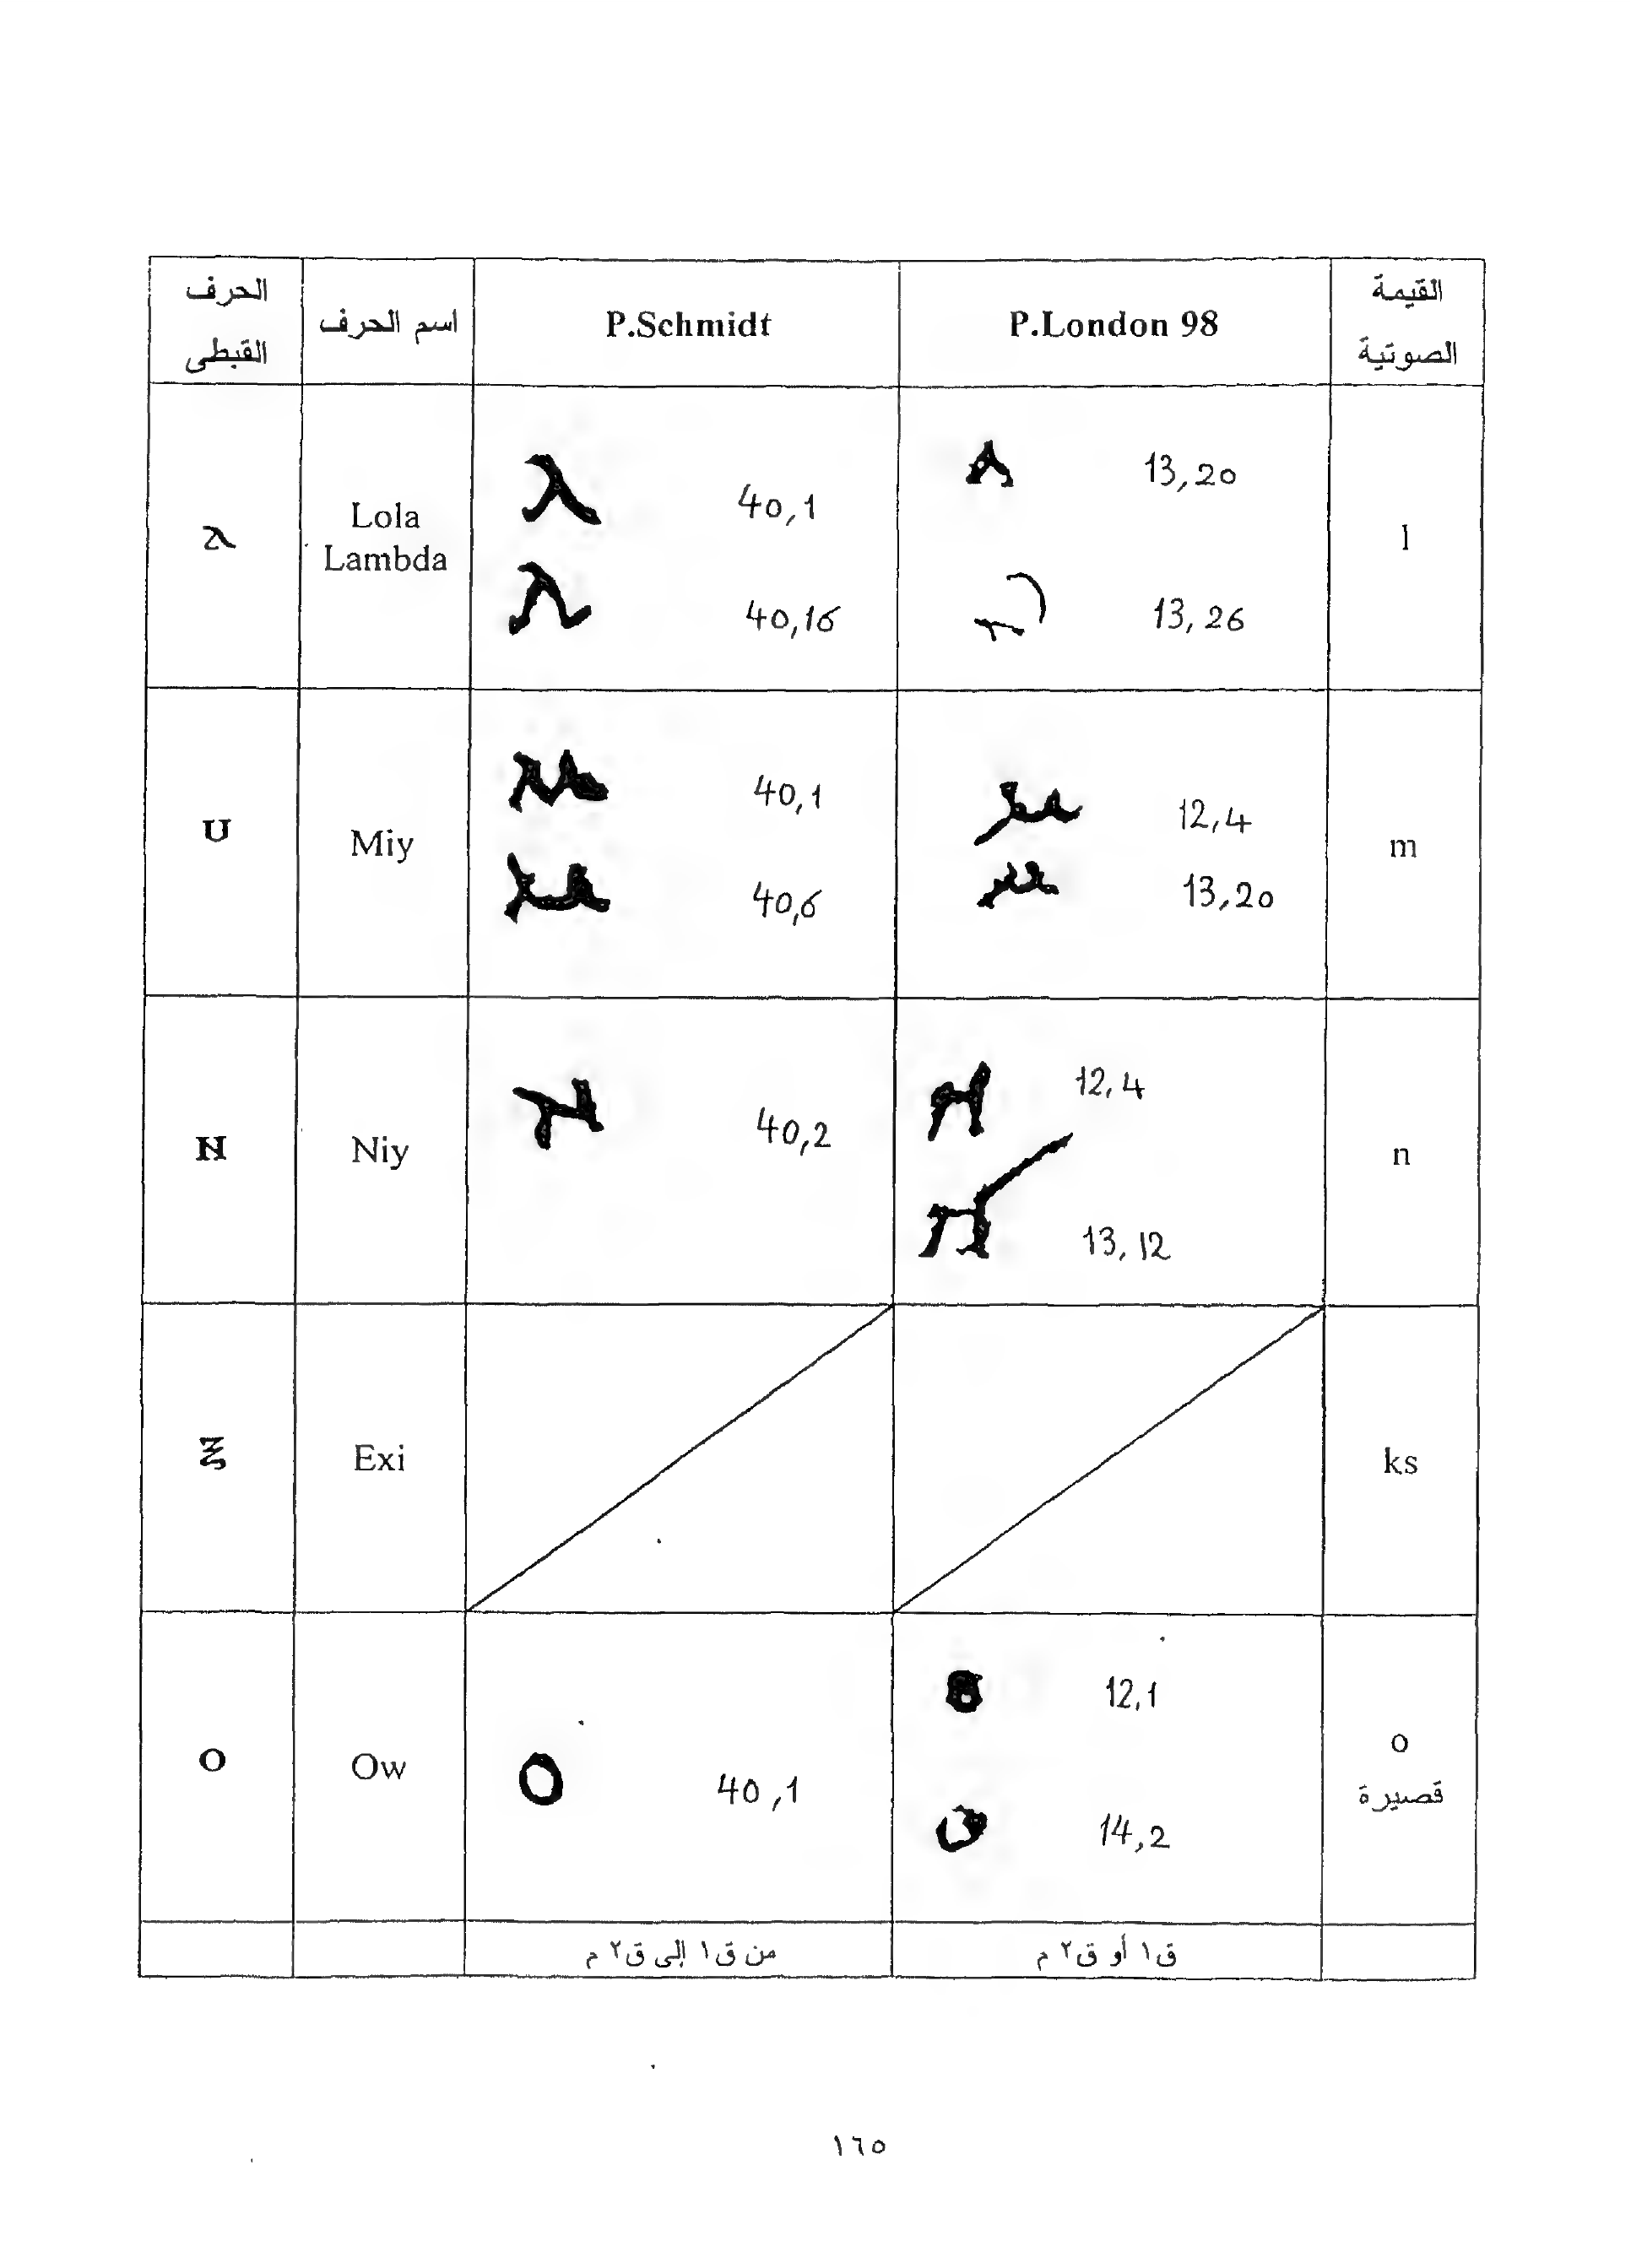 الحرف القبطى
اسم الحرف
P.Schmidt
P.London 98
القيمة الصوتية
ⲗ
Lola
Lambda
40,1
40,16
13,20
13,26
l
ⲙ
Miy
40,1
40,6
12,4
13,20
m
ⲛ
Niy
40,2
12,4
13,12
n
ⲝ
Exi
ks
ⲟ
Ow
40,1
12,1
14,2
o
قصيرة
من ق١ إلى ق٢ م
ق١ أو ق٢ م
١٦٥